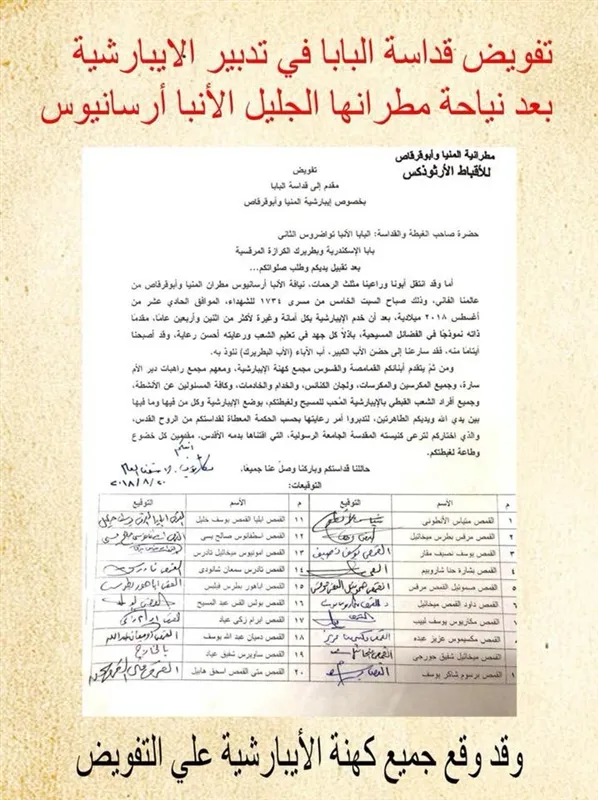 تفويض قداسة البابا في تدبير الايبارشية
بعد نياحة مطرانها الجليل الأنبا أرسانيوس
مطرانية المنيا وأبوقرقاص
للأقباط الأرثوذكس
تفويض
مقدم إلى قداسة البابا
بخصوص إيبارشية المنيا وأبوقرقاص
حضرة صاحب الغبطة والقداسة: البابا الأنبا تواضروس الثانى
بابا الإسكندرية وبطريرك الكرازة المرقسية
بعد تقبيل يديكم وطلب صلواتكم...
أما وقد انتقل أبونا وراعينا مثلث الرحمات، نيافة الأنبا أرسانيوس مطران المنيا وأبوقرقاص من
عالمنا الفاني، وذلك صباح السبت الخامس من مسرى ١٧٣٤ للشهداء، الموافق الحادي عشر من
أغسطس ٢٠١٨ ميلادية، بعد أن خدم الإيبارشية بكل أمانة وغيرة لأكثر من اثنين وأربعين عامًا، مقدمًا
ذاته نموذجًا في الفضائل المسيحية، باذلاً كل جهد في تعليم الشعب ورعايته أحسن رعاية، وقد أصبحنا
أيتامًا منه، فقد سارعنا إلى حضن الأب الكبير، أب الآباء (الأب البطريرك) نلوذ به.
ومن ثمّ يتقدم أبنائكم القمامصة والقسوس مجمع كهنة الإيبارشية، ومعهم مجمع راهبات دير الأم
سارة، وجميع المكرسين والمكرسات، ولجان الكنائس، والخدام والخادمات، وكافة المسئولين عن الأنشطة،
وجميع أفراد الشعب القبطي بالإيبارشية المُحب للمسيح ولغبطتكم، بوضع الإيبارشية وكل من فيها وما فيها
بين يدي الله ويديكم الطاهرتين، لتدبروا أمر رعايتها بحسب الحكمة المعطاة لقداستكم من الروح القدس،
والذي اختاركم لترعى كنيسته المقدسة الجامعة الرسولية، التي اقتناها بدمه الأقدس، مقدمين كل خضوع
وطاعة لغبطتكم.
حاللنا قداستكم وباركنا وصلّ عنا جميعًا.
٢٠١٨/٨/٢٠
التوقيعات:
م الأسم التوقيع م الأسم التوقيع
١ القمص متياس الأنطونى ١١ القمص ايليا القمص يوسف خليل
٢ القمص مرقس بطرس ميخائيل ١٢ القمص اسطفانوس صالح بسى
٣ القمص يوسف نصيف مقار ١٣ القمص امونيوس ميخائيل تادرس
٤ القمص بشارة حنا شاروبيم ١٤ القمص تادرس سمعان شانودى
٥ القمص صموئيل القمص مرقس ١٥ القمص اباهور بطرس فيلبس
٦ القمص داود القمص ميخائيل ١٦ القمص بولس القس عبد المسيح
٧ القمص مكاريوس يوسف لبيب ١٧ القمص ابرام زكى عياد
٨ القمص مكسيموس عزيز عبده ١٨ القمص دميان عبد الله يوسف
القمص ميخائيل شفيق جورجى ١٩ القمص ساويرس شفيق عياد
القمص برسوم شاكر يوسف ٢٠ القمص متى القمص اسحق هابيل
وقد وقع جميع كهنة الأيبارشية علي التفويض